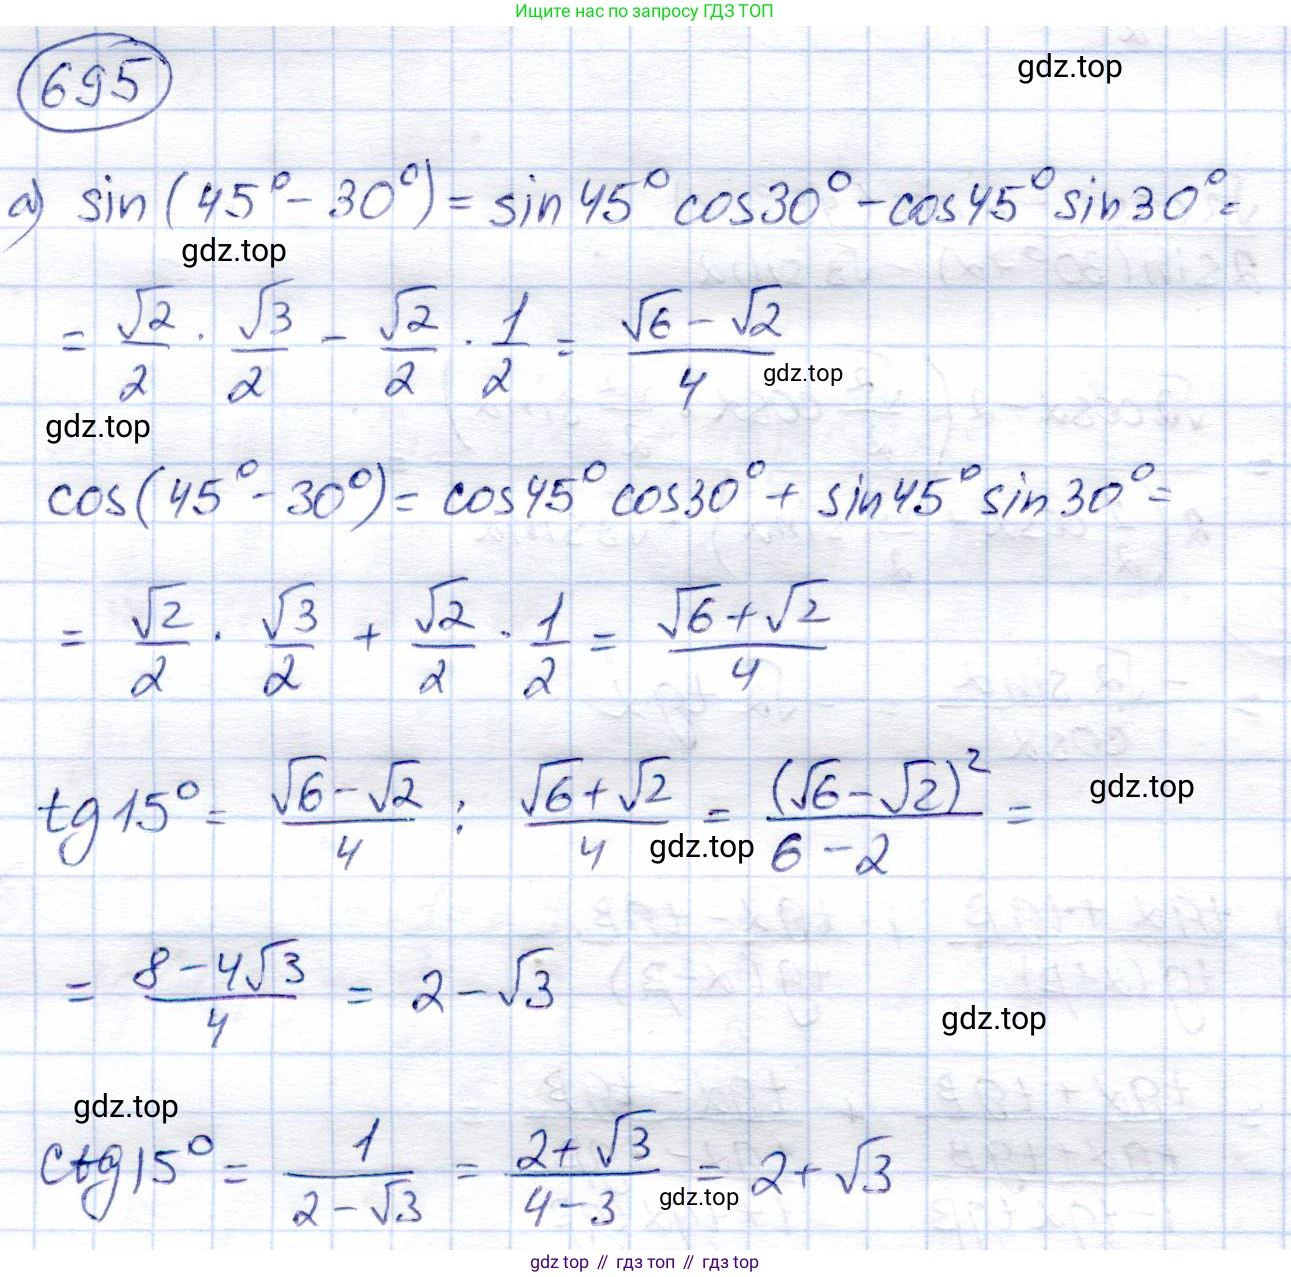 Ищите нас по запросу ГДЗ ТОП
695
gdz.top
а) sin(45° - 30°) = sin45° cos30° - cos45° sin30° =
gdz.top
= √2/2 · √3/2 - √2/2 · 1/2 = (√6 - √2)/4
gdz.top
gdz.top
cos(45° - 30°) = cos45° cos30° + sin45° sin30° =
= √2/2 · √3/2 + √2/2 · 1/2 = (√6 + √2)/4
tg15° = (√6 - √2)/4 : (√6 + √2)/4 = (√6 - √2)²/(6 - 2) =
gdz.top
gdz.top
= (8 - 4√3)/4 = 2 - √3
gdz.top
gdz.top
ctg15° = 1/(2 - √3) = (2 + √3)/(4 - 3) = 2 + √3
gdz.top
gdz top // гдз топ // гдз top